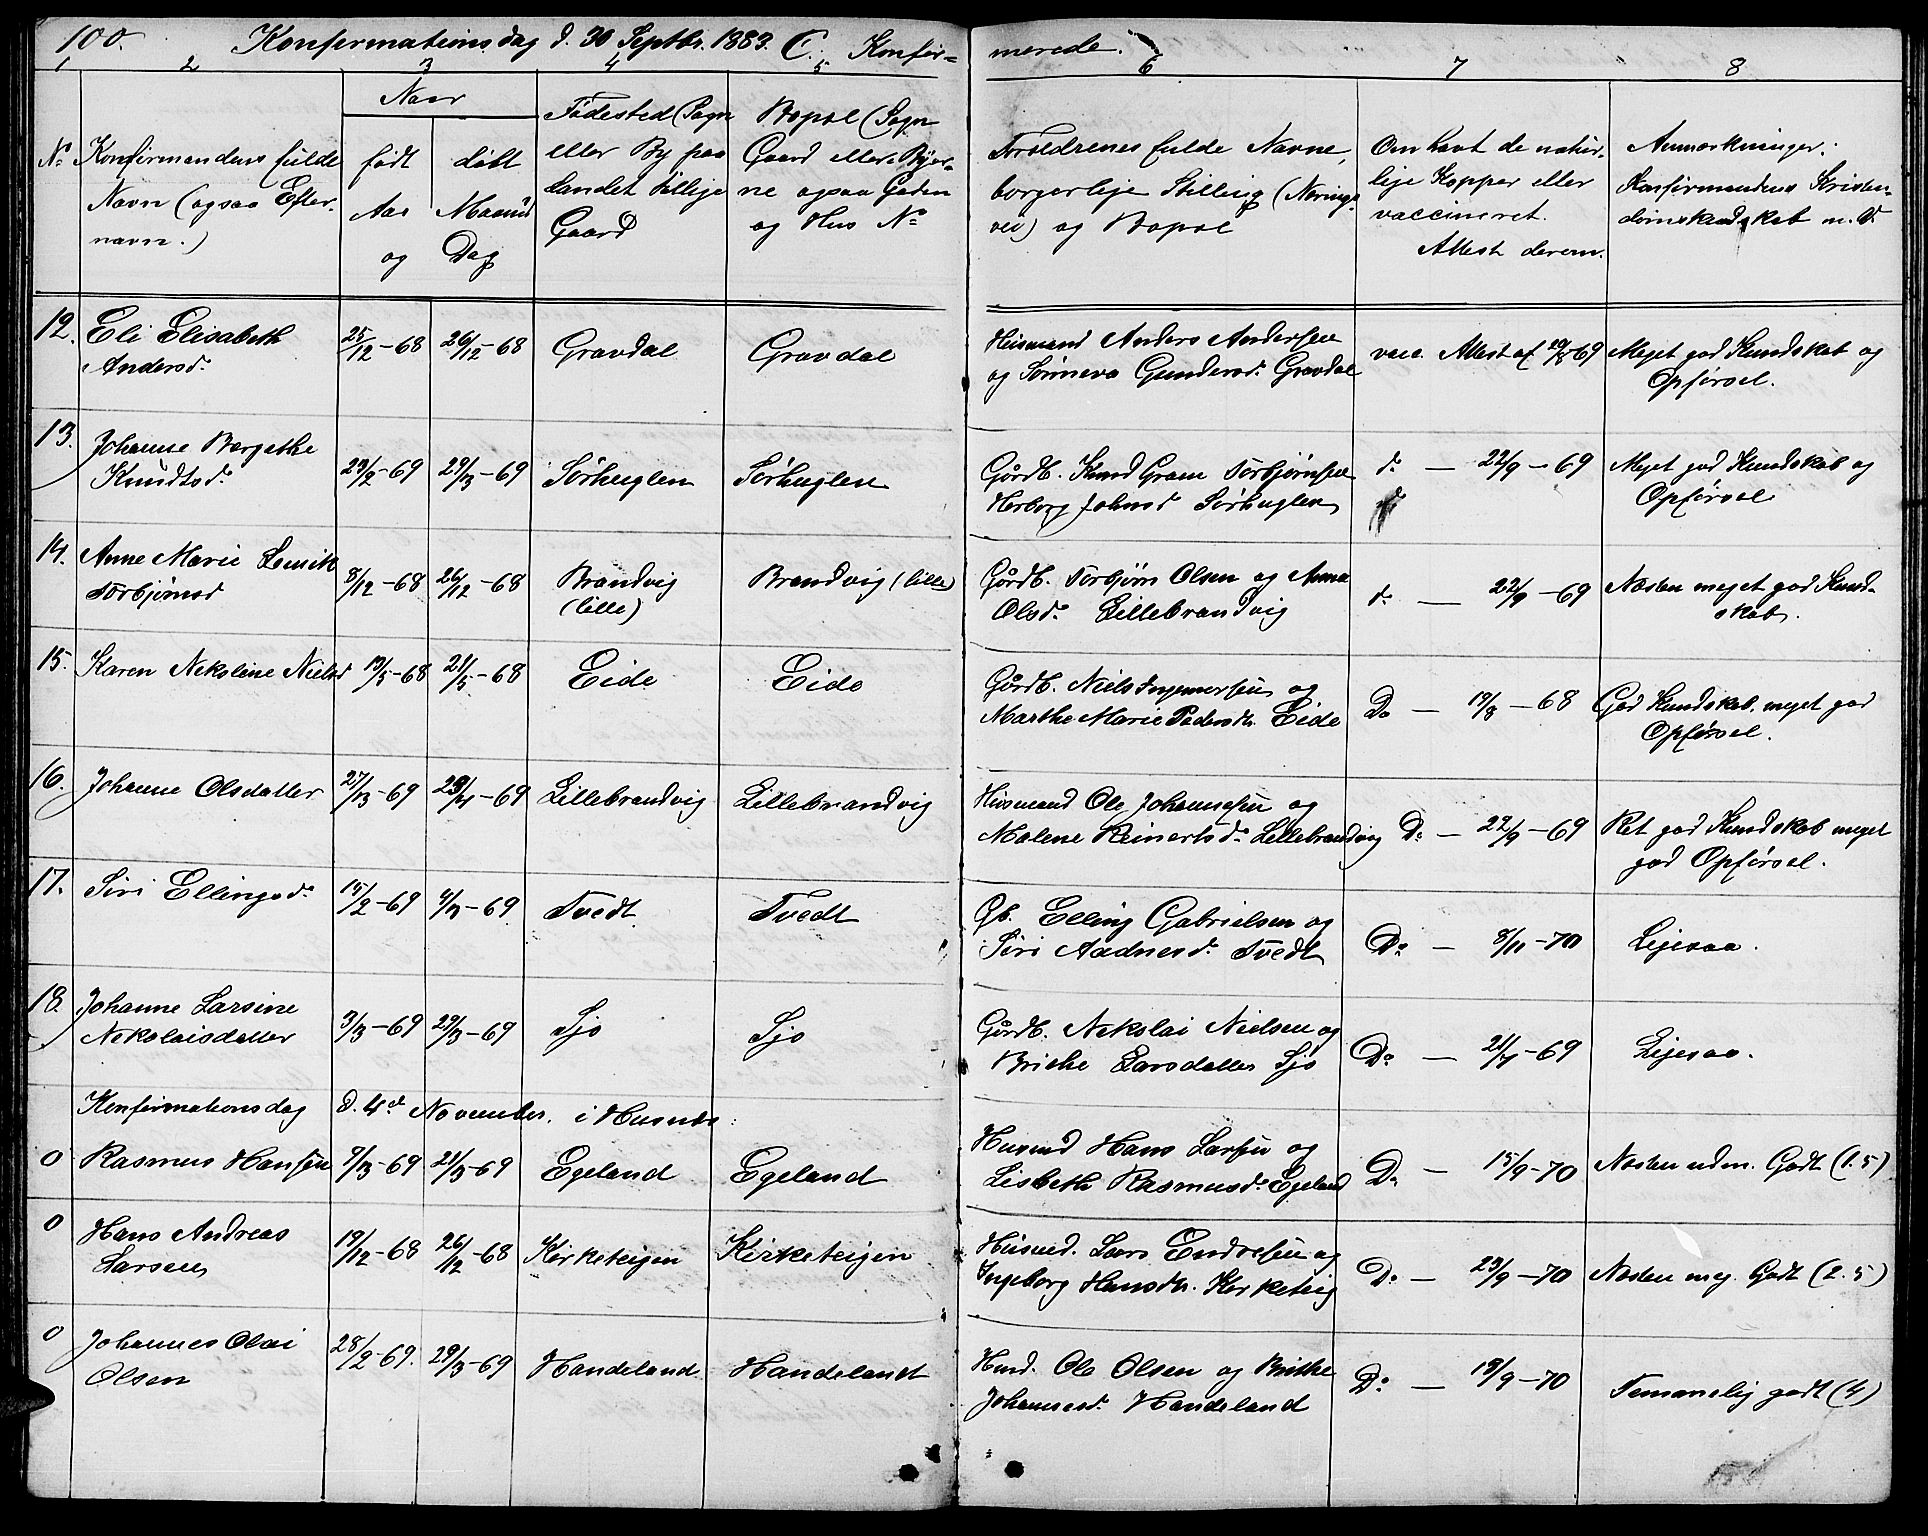 100. Konfirmationsdag d. 30 Septbr. 1883. C. Konfir=
merede.
1 2 3 4 5 6 7 8
No Konfirmandens fulde
Navn (ogsaa Efter-
navn.)
Naar
født døbt
Aar Maaned
og Dag
Fødested (Sogn
eller By paa
Landet tillige
Gaard
Bopæl (Sogn
Gaard eller Byer-
ne ogsaa Gaden
og Hus No
Forældrenes fulde Navne,
borgerlige Stilling (Nærings
vei) og Bopæl
Om havt de natur-
lige Kopper eller
vaccineret.
Attest derom.
Anmærkninger.
Konfirmandens Kristen-
domskundskab m. V.
12. Eli Elisabeth
Andersd.
25/12-68 26/12-68 Gravdal Gravdal
Husmand Anders Andersen
og Sønneva Gundersd. Gravdal
vacc. Attest af -69
Meget god Kundskab og
Opførsel.
13. Johanne Bergethe
Knudtsd.
23/2-69 29/3-69 Sørhuglen Sørhuglen
Gårdb. Knud Grane Torbjørnsen
Herborg Johnsd Sørhuglen
d. — 22/9-69
d.
Meget god Kundskab og
Opførsel
14. Anne Marie
Torbjørnsd
8/12-68 26/12-68 Brandvig
(lille)
Brandvig (lille)
Gårdb. Torbjørn Olsen og Anna
Olsd. Lillebrandvig
d. — 22/9-69
Næsten meget god Kund-
skab.
15. Karen Nekoline Nielsd
13/5-68 21/5-68 Eide Eide
Gårdb. Niels Ingemersen og
Marthe Marie Pedersdtr. Eide
Do — 19/8-68
God Kundskab. meget god
Opførsel.
16. Johanne Olsdatter
27/3-69 29/4-69 Lillebrandvig Lillebrandvig
Husmand Ole Johannesen og
Malene Reinertsd. Lillebrandvig
Do — 22/9-69
Ret god Kundskab meget
god Opførsel.
17. Siri Ellingsd.
15/2-69 4/3-69 Tvedt Tvedt
Gb. Elling Gabrielsen og
Siri Aadnesd. Tvedt
Do — 8/11-70
Ligesaa.
18. Johanne Larsine
Nekolaisdatter
3/3-69 29/3-69 Sjo Sjo
Gårdb. Nekolai Nielsen og
Brithe Larsdatter Sjo
Do — 21/7-69
Ligesaa.
Konfirmationsdag d. 4de November. i Husnæs:
0 Rasmus Hansen
9/3-69 21/3-69 Egeland Egeland
Husmd Hans Larsen og
Lisbeth Rasmusd. Egeland
Do — 15/9-70
Næsten udm. Godt (1.5)
0 Hans Andreas
Larsen
19/12-68 26/12-68 Kirketeigen Kirketeigen
Husmd. Lars Endresen og
Ingeborg Hansdtr. Kirketeig
Do — 23/9-70
Næsten meg. Godt (2.5)
0 Johannes Olai
Olsen
28/2-69. 29/3-69 Handeland Handeland
Husd. Ole Olsen og Brithe
Johannesd. Handeland
Do — 19/9-70
Temmelig godt (4)